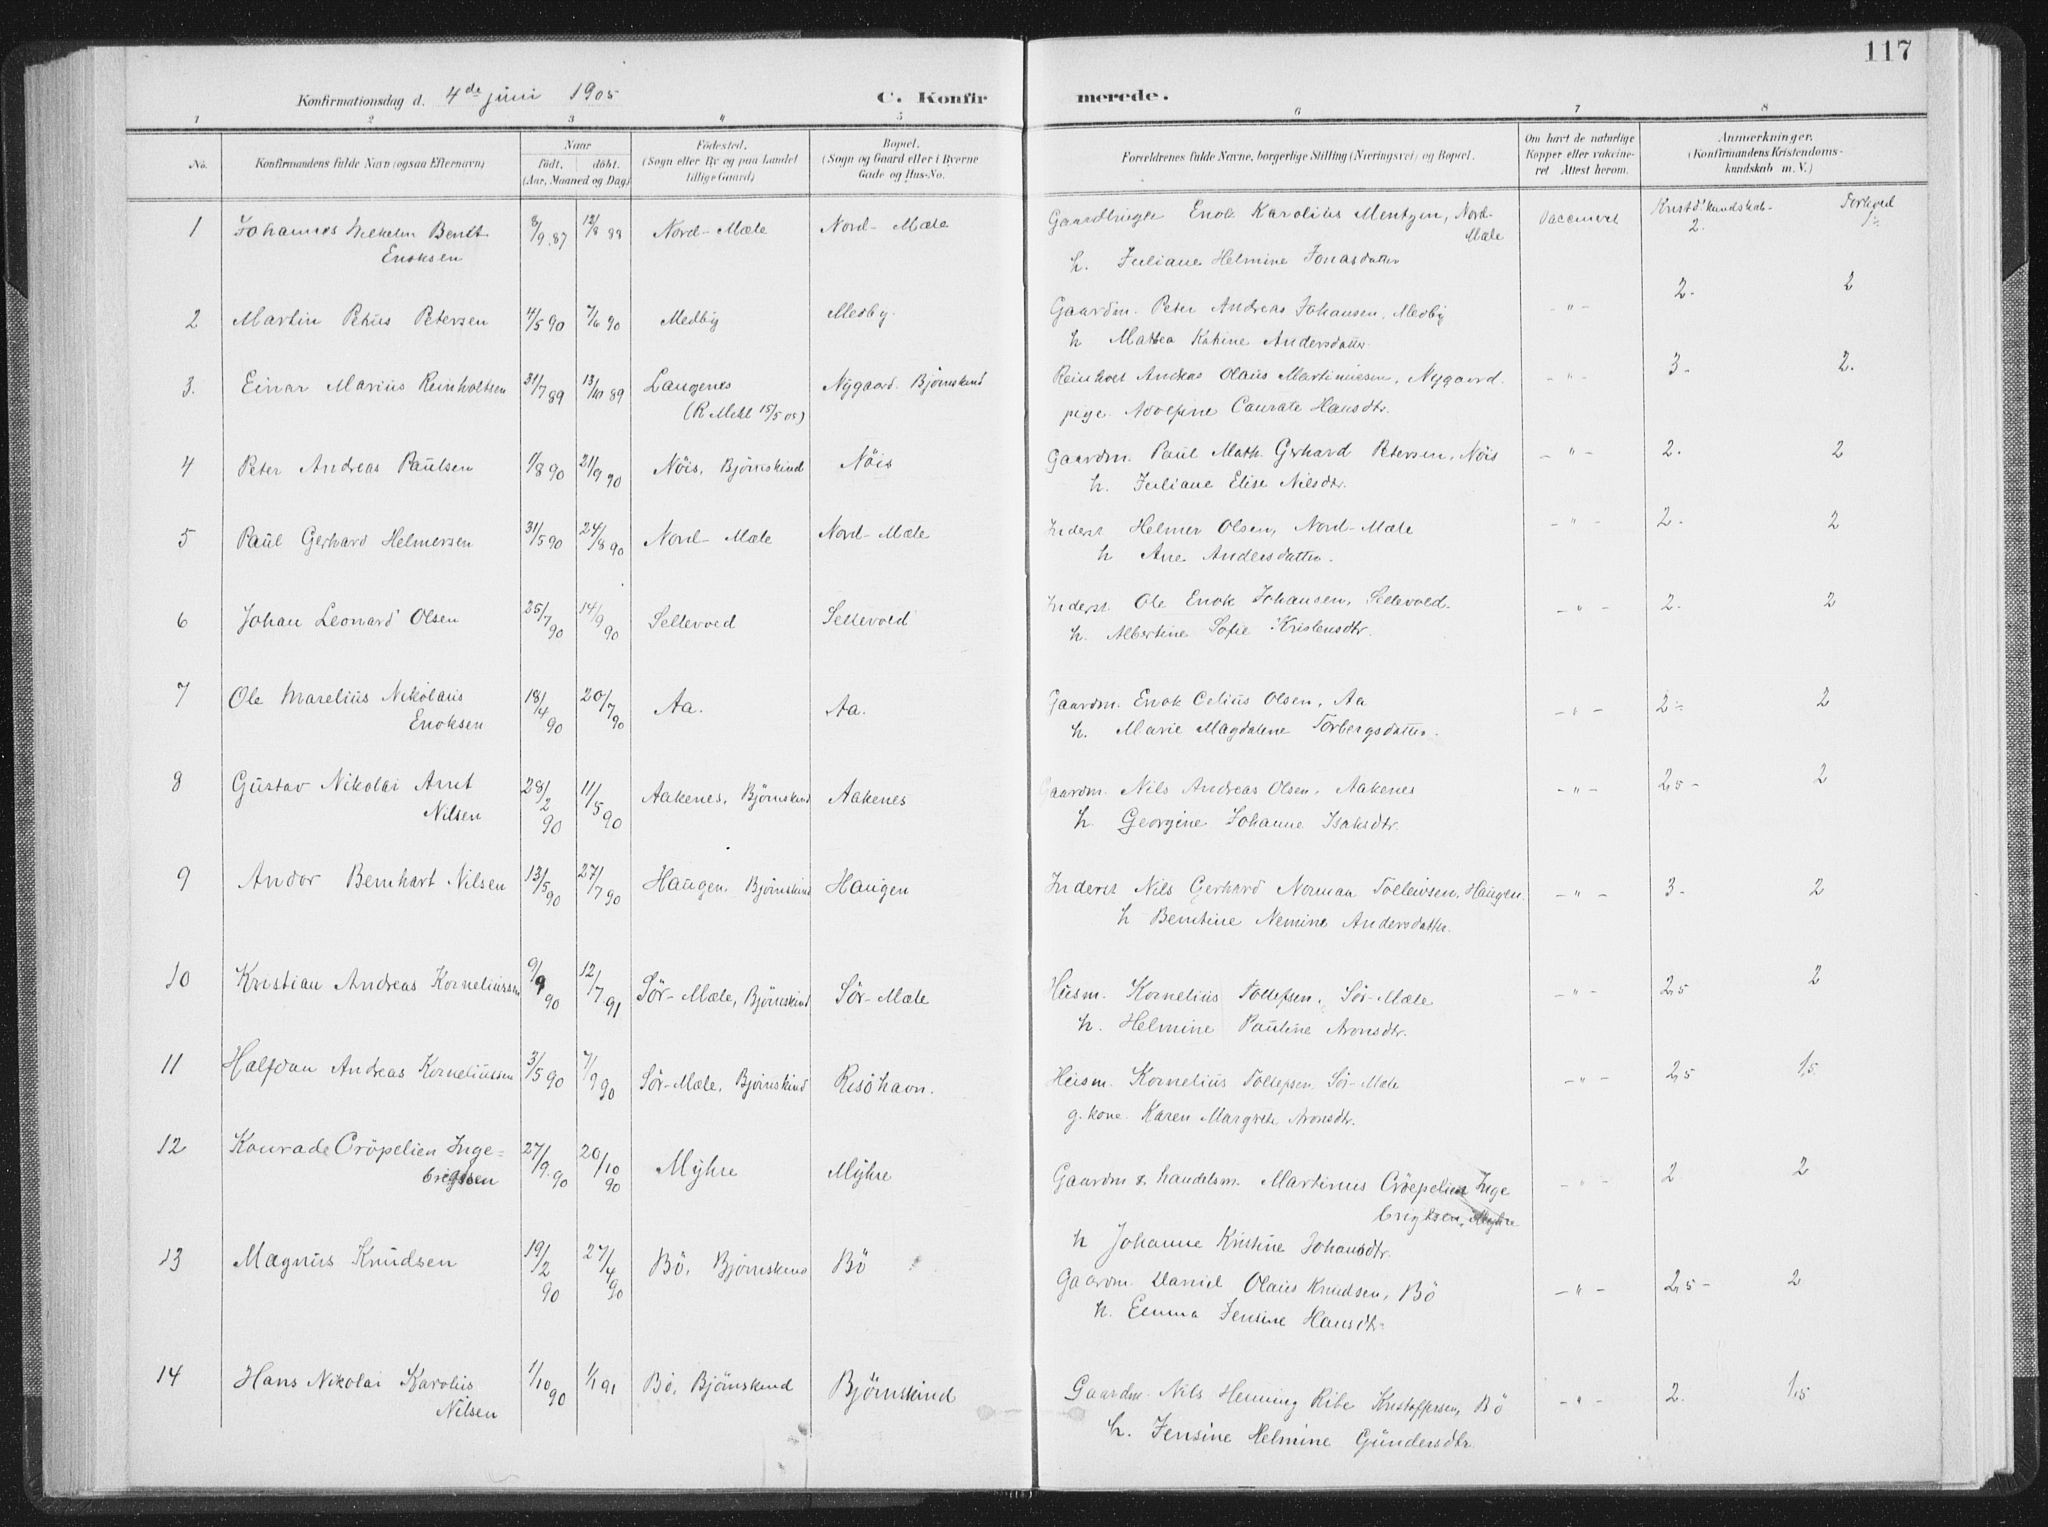 117
Konfirmationsdag d. 4de juni 1905 C. Konfirmerede.
1 2 3 4 5 6 7 8
No. Konfirmandens fulde Navn (ogsaa Efternavn) Naar født. døbt. (Aar, Maaned og Dag) Fødested. (Sogn eller By og paa Landet tillige Gaard) Bopæl. (Sogn og Gaard eller i Byerne Gade og Hus-No. Forældrenes fulde Navne, borgerlige Stilling (Næringsvei) og Bopæl. Om havt de naturlige Kopper eller vakcineret Attest herom. Anmærkninger. (Konfirmandens Kristendomskundskab m. V.)
Kristd.kundskab Forhold
1 Johannes Wilhelm Bendt 8/9.87 12/8 88 Nord-Mæle Nord-Mæle Enok Karolius Mentzen, Nord- Vaccineret 2. 1÷
Enoksen Mæle
h. Juliane Helmine Jonasdatter
2 Martin Petrus Petersen 4/5 90 7/6 90 Medby Medby. Gaardm. Peter Andreas Johansen, Medby -"- 2- 2
h Mathea Katrine Andersdatter
3. Einar Marius Reinholtsen 31/7 89 13/10 89 Langenes Nygaard. Bjørnskind Reinholt Andreas Olaus Martinussen, Nygaard. -"- 3- 2.
(R Mehl 15/5 05) pige Adolfine Laurate Hansdtr.
4 Peter Andreas Paulsen 1/8 90 21/9 90 Nöis, Bjørnskind Nöis Gaardm. Paul Math. Gerhard Petersen, Nöis -"- 2. 2
h. Juliane Elise Nilsdtr.
5 Paul Gerhard Helmersen 31/5 90 24/8 90 Nord-Mæle Nord-Mæle Inderst Helmer Olsen, Nord-Mæle -"- 2- 2
h Ane Andersdatter.
6 Johan Leonard Olsen 25/7 90 14/9 90 Sellevold Sellevold Inderst Ole Enok Johansen, Sellevold. -"- 2. 2
h. Albertine Sofie Kristensdtr.
7 Ole Marelius Nikolaus 18/4 90 20/7 90 Aa. Aa. Gaardm. Enok Celius Olsen, Aa -"- 2÷ 2
Enoksen h. Marie Magdalene Torbergsdatter.
8 Gustav Nikolai Arnt 28/2 90 11/5 90 Aakenes, Bjørnskind Aakenes Gaardm. Nils Andreas Olsen, Aakenes -"- 2,5- 2
Nilsen h. Georgine Johanne Isaksdtr.
9 Andor Bernhart Nilsen 13/5 90 27/7 90 Haugen, Bjørnskind Haugen Inderst Nils Gerhard Norman Tollevsen, Haugen. -"- 3- 2
h Berntine Nemine Andersdatter.
10 Kristian Andreas Korneliussen 9/9 90 12/7 91 Sör-Mæle, Bjørnskind Sör-Mæle Husm. Kornelius Tollefsen, Sör-Mæle -"- 2,5 2
h. Helmine Pauline Aronsdtr.
11 Halfdan Andreas Korneliussen 3/5 90 7/9 90 Sör-Mæle, Bjørnskind Risöhavn. Husm. Kornelius Tollefsen, Sör-Mæle -"- 2,5 1,5
g. kone. Karen Margrete Aronsdtr.
12 Konrade Cröpelien Inge= 27/9.90 20/10 90 Myhre Myhre Gaardm & handelsm. Martinus Cröepelien Inge -"- 2. 2
brigtsen brigtsen, Myhre
h Johanne Kristine Johansdtr.
13 Magnus Knudsen 19/2 90 27/4 90 Bö, Bjørnskind Bö Gaardm. Daniel Olaus Knudsen, Bö -"- 2,5- 2
h. Emma Jensine Hansdtr.
14 Hans Nikolai Karolius 1/10 90 1/1 91 Bö, Bjørnskind Bjørnskind Gaardm. Nils Henning Ribe Kristoffersen, Bö -"- 2. 1,5
Nilsen h. Jensine Helmine Gundersdtr.